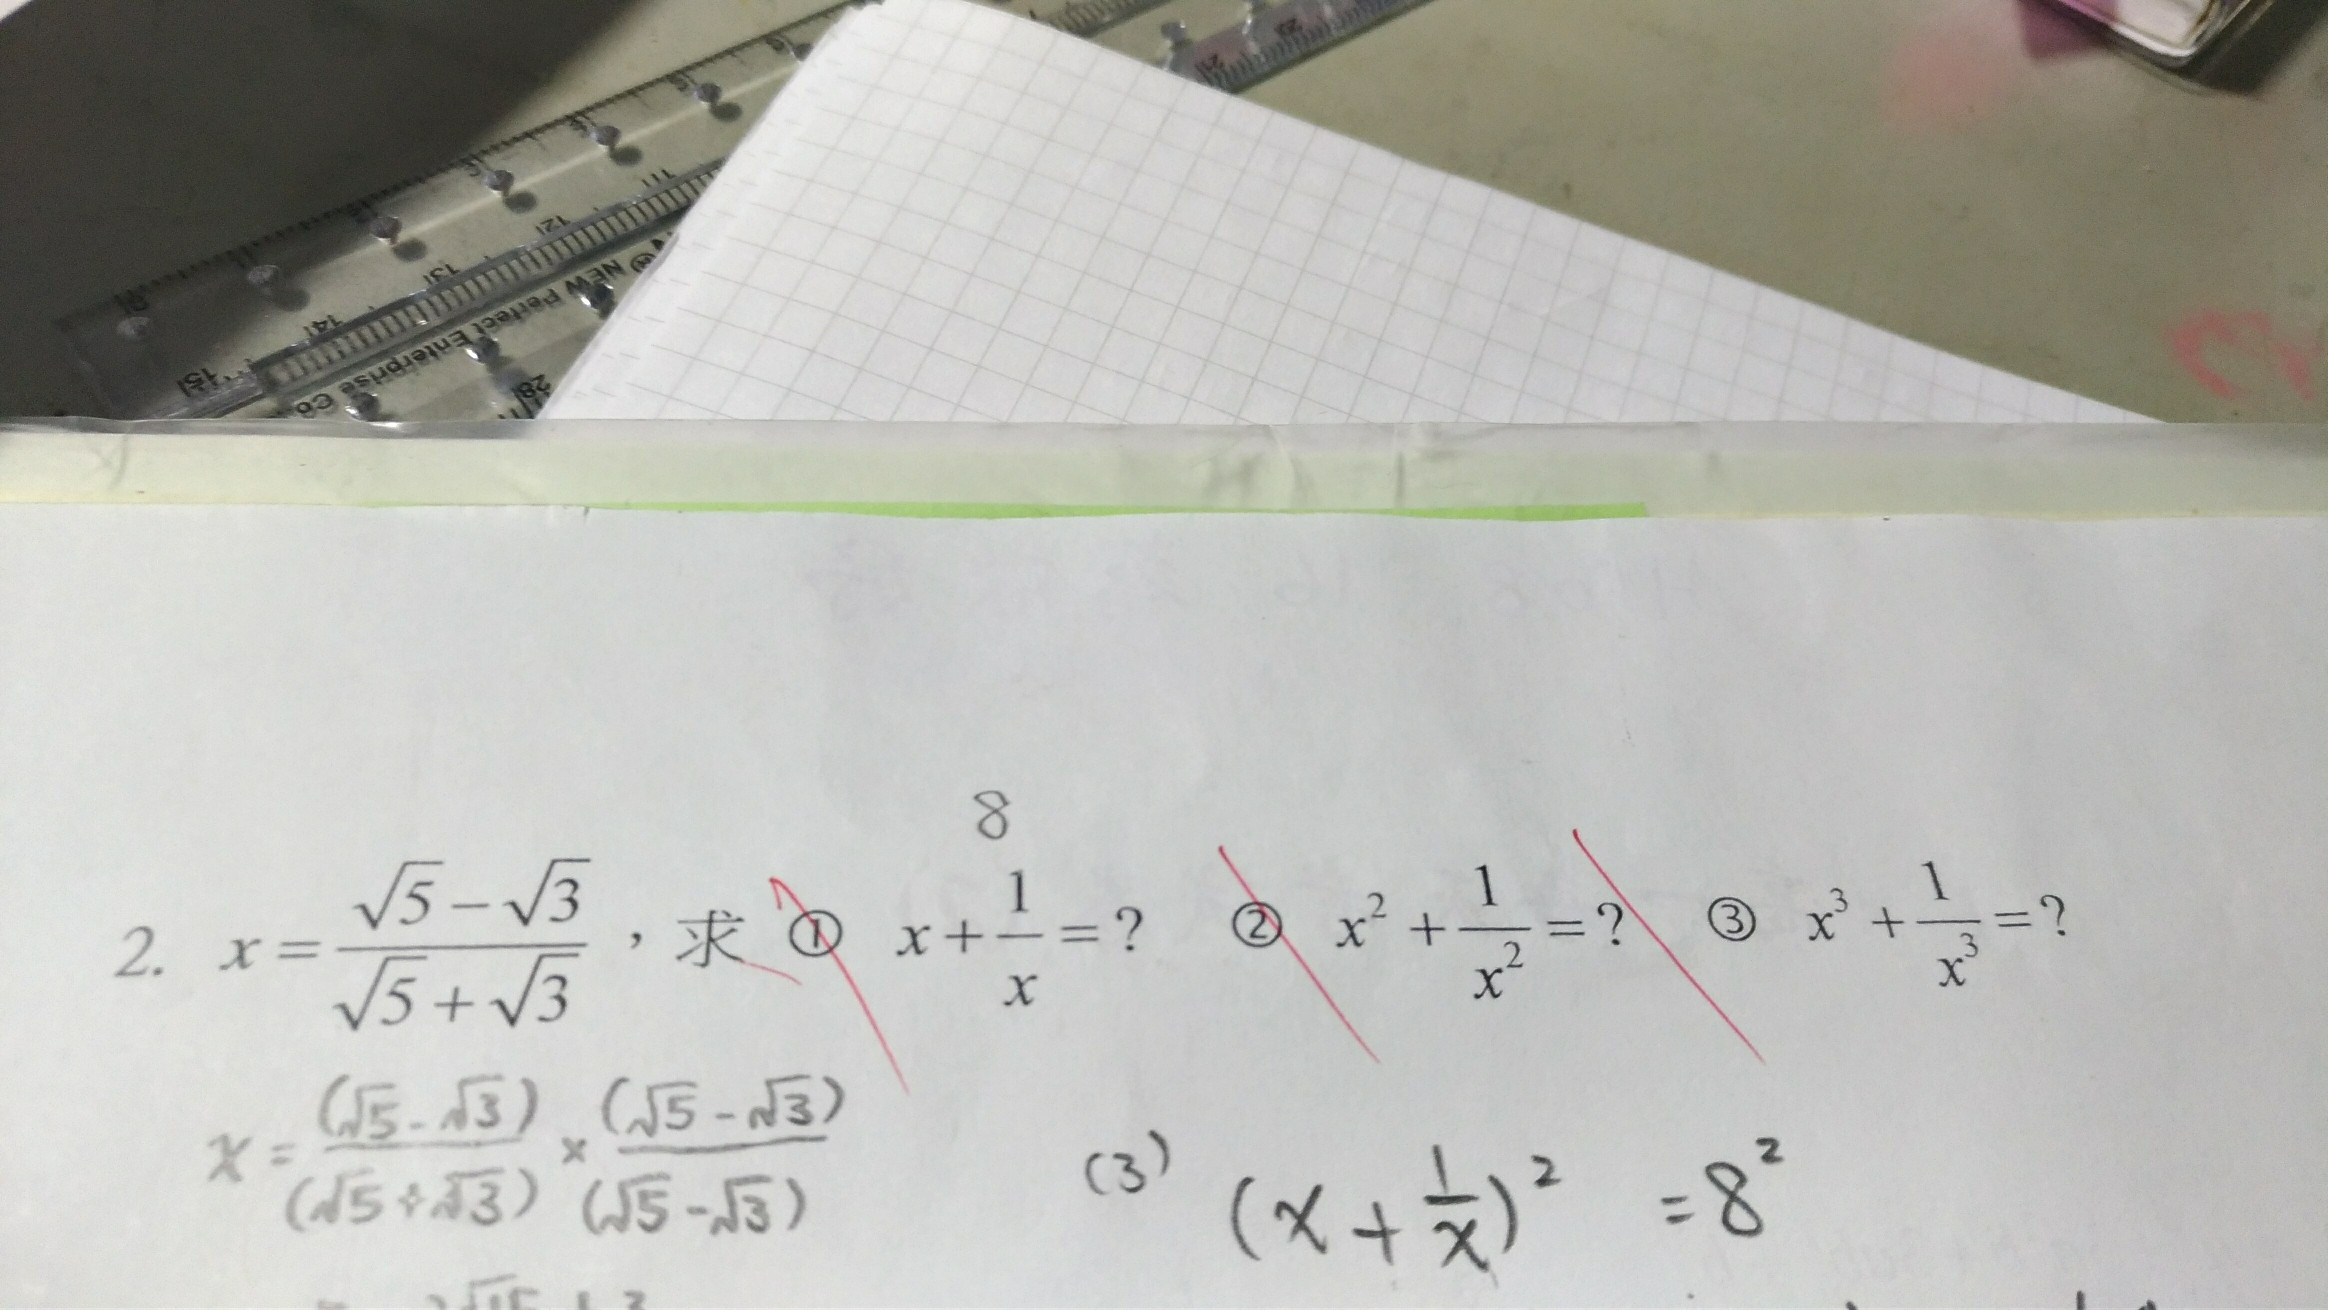 15 14 13 12 11
NEW Perfect Enterprise Co.
28
21
8
2. x = (√5 − √3)/(√5 + √3) ，求 ① x + 1/x = ? ② x² + 1/x² = ? ③ x³ + 1/x³ = ?
x = (√5 - √3)/(√5 + √3) × (√5 - √3)/(√5 - √3)
(3) (x + 1/x)² = 8²